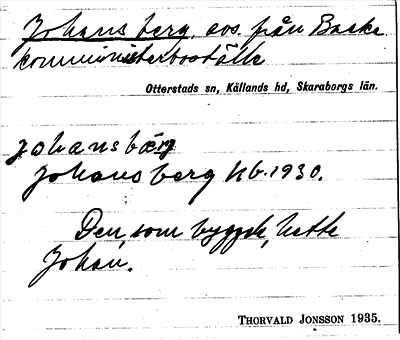 Johansberg, avs. från Backe
komministerboställe
Otterstads sn, Kållands hd, Skaraborgs län.
johansbærj
Johansberg hb. 1930.
Den, som byggde, hette
Johan.
THORVALD JONSSON 1935.